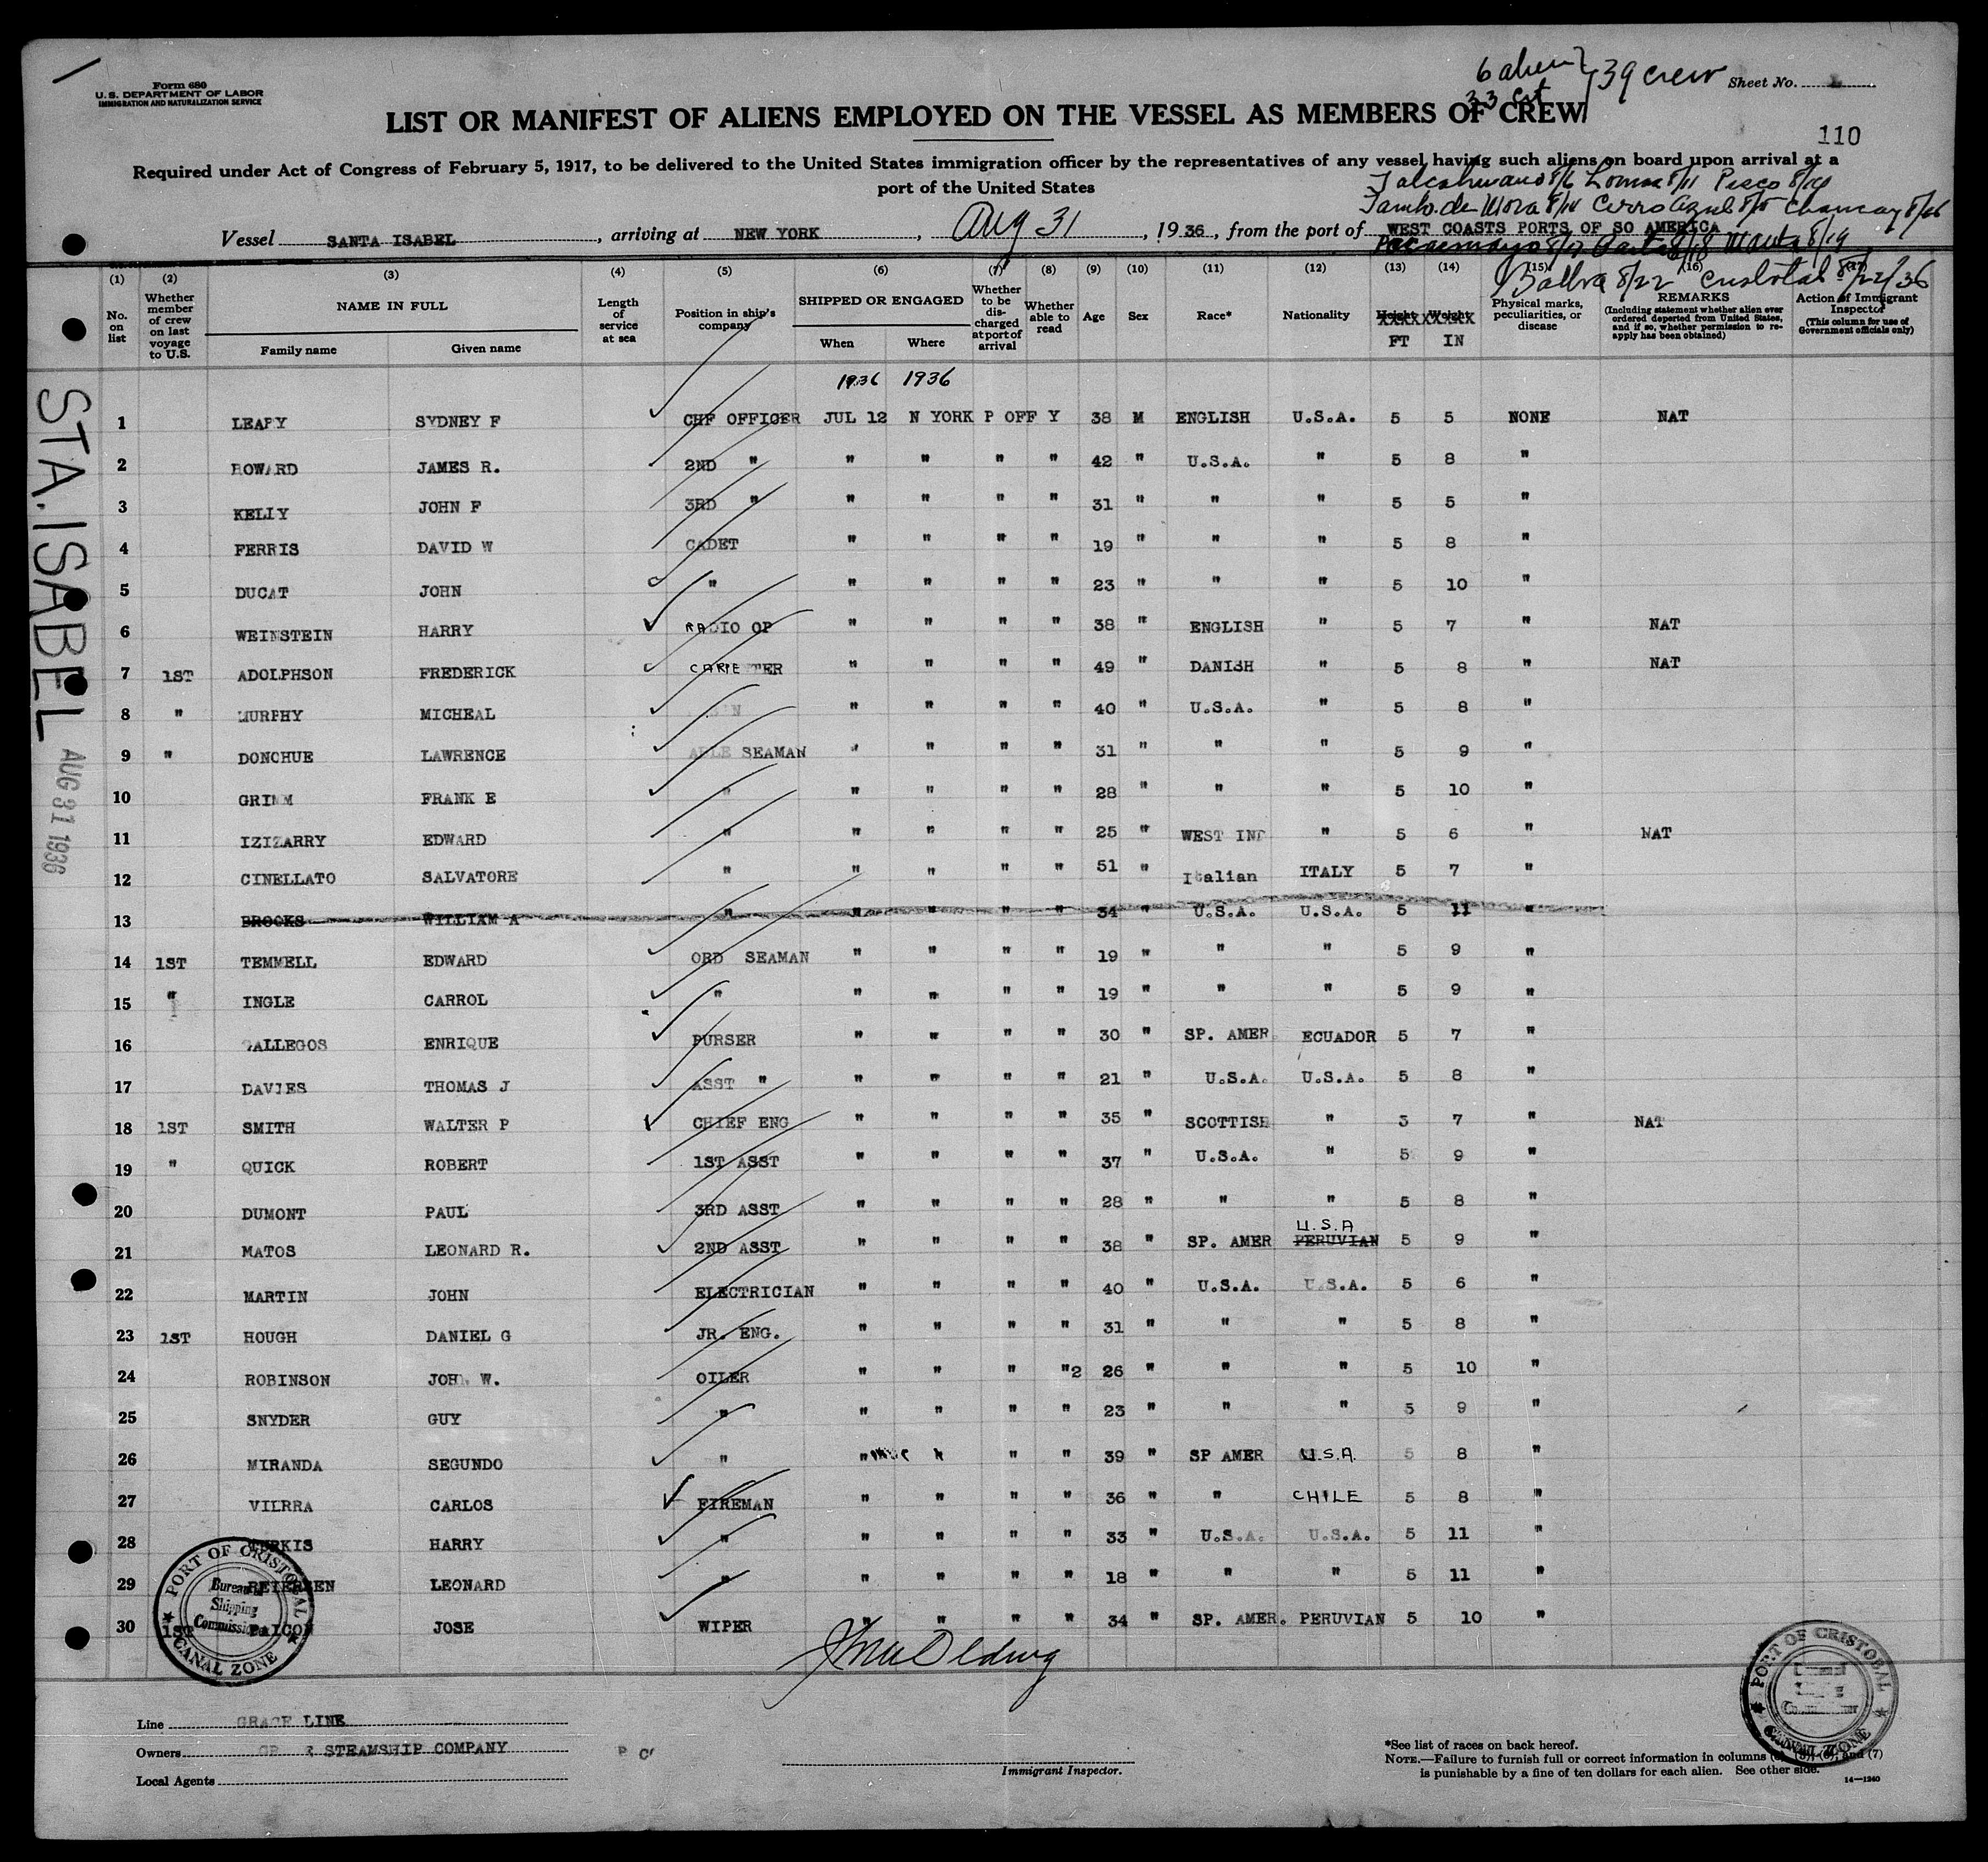 Form 680
U.S. DEPARTMENT OF LABOR
IMMIGRATION AND NATURALIZATION SERVICE
6 alien 39 crew Sheet No.
33 Cit
LIST OR MANIFEST OF ALIENS EMPLOYED ON THE VESSEL AS MEMBERS OF CREW
110
Required under Act of Congress of February 5, 1917, to be delivered to the United States immigration officer by the representatives of any vessel having such aliens on board upon arrival at a
port of the United States
Talcahuano 8/6 Lomas 8/11 Pisco 8/14
Tambo de Mora 8/14 Cerro Azul 8/15 Chancay 8/16
Vessel SANTA ISABEL, arriving at NEW YORK, Aug 31, 1936, from the port of WEST COASTS PORTS OF SO AMERICA
Pacasmayo 8/17 Paita 8/18 Manta 8/19
Balboa 8/22 Cristobal 8/22/36
(1) (2) (3) (4) (5) (6) (7) (8) (9) (10) (11) (12) (13) (14) (15) (16)
No. on list Whether member of crew on last voyage to U.S. NAME IN FULL Family name Given name Length of service at sea Position in ship's company SHIPPED OR ENGAGED When Where Whether to be discharged at port of arrival Whether able to read Age Sex Race* Nationality Height Weight FT IN Physical marks, peculiarities, or disease REMARKS (Including statement whether alien ever ordered deported from United States, and if so, whether permission to reapply has been obtained) Action of Immigrant Inspector (This column for use of Government officials only)
1936 1936
1 LEARY SYDNEY F CHF OFFICER JUL 12 N YORK P OFF Y 38 M ENGLISH U.S.A. 5 5 NONE NAT
2 HOWARD JAMES R. 2ND " " " " " 42 " U.S.A. " 5 8 "
3 KELLY JOHN F 3RD " " " " " 31 " " " 5 5 "
4 FERRIS DAVID W CADET " " " " 19 " " " 5 8 "
5 DUCAT JOHN " " " " " 23 " " " 5 10 "
6 WEINSTEIN HARRY RADIO OP " " " " 38 " ENGLISH " 5 7 " NAT
7 1ST ADOLPHSON FREDERICK CARPENTER " " " " 49 " DANISH " 5 8 " NAT
8 " MURPHY MICHEAL " " " " 40 " U.S.A. " 5 8 "
9 " DONOHUE LAWRENCE ABLE SEAMAN " " " " 31 " " " 5 9 "
10 GRIMM FRANK E " " " " " 28 " " " 5 10 "
11 IZIZARRY EDWARD " " " " " 25 " WEST IND " 5 6 " NAT
12 CINELLATO SALVATORE " " " " " 51 " Italian ITALY 5 7 "
13 BROOKS WILLIAM A " " " " " 34 " U.S.A. U.S.A. 5 11 "
14 1ST TEMMELL EDWARD ORD SEAMAN " " " " 19 " " " 5 9 "
15 " INGLE CARROL " " " " " 19 " " " 5 9 "
16 GALLEGOS ENRIQUE PURSER " " " " 30 " SP. AMER ECUADOR 5 7 "
17 DAVIES THOMAS J ASST " " " " " 21 " U.S.A. U.S.A. 5 8 "
18 1ST SMITH WALTER P CHIEF ENG " " " " 35 " SCOTTISH " 5 7 " NAT
19 " QUICK ROBERT 1ST ASST " " " " 37 " U.S.A. " 5 9 "
20 DUMONT PAUL 3RD ASST " " " " 28 " " " 5 8 "
U.S.A
21 MATOS LEONARD R. 2ND ASST " " " " 38 " SP. AMER PERUVIAN 5 9 "
22 MARTIN JOHN ELECTRICIAN " " " " 40 " U.S.A. U.S.A. 5 6 "
23 1ST HOUGH DANIEL G JR. ENG. " " " " 31 " " " 5 8 "
24 ROBINSON JOHN W. OILER " " " "2 26 " " " 5 10 "
25 SNYDER GUY " " " " " 23 " " " 5 9 "
26 MIRANDA SEGUNDO " " " " " 39 " SP AMER U.S.A. 5 8 "
27 VIERRA CARLOS FIREMAN " " " " 36 " " CHILE 5 8 "
28 HARRY " " " " " 33 " U.S.A. U.S.A. 5 11 "
29 PETERSEN LEONARD " " " " " 18 " " " 5 11 "
30 1ST FALCON JOSE WIPER " " " " 34 " SP. AMER. PERUVIAN 5 10 "
STA. ISABEL
AUG 31 1936
PORT OF CRISTOBAL
Bureau
Shipping
Commissioner
CANAL ZONE
PORT OF CRISTOBAL
CANAL ZONE
Line GRACE LINE
Owners GRACE STEAMSHIP COMPANY
Local Agents
Immigrant Inspector.
*See list of races on back hereof.
NOTE.—Failure to furnish full or correct information in columns (5), (6), and (7)
is punishable by a fine of ten dollars for each alien. See other side.
14—1240